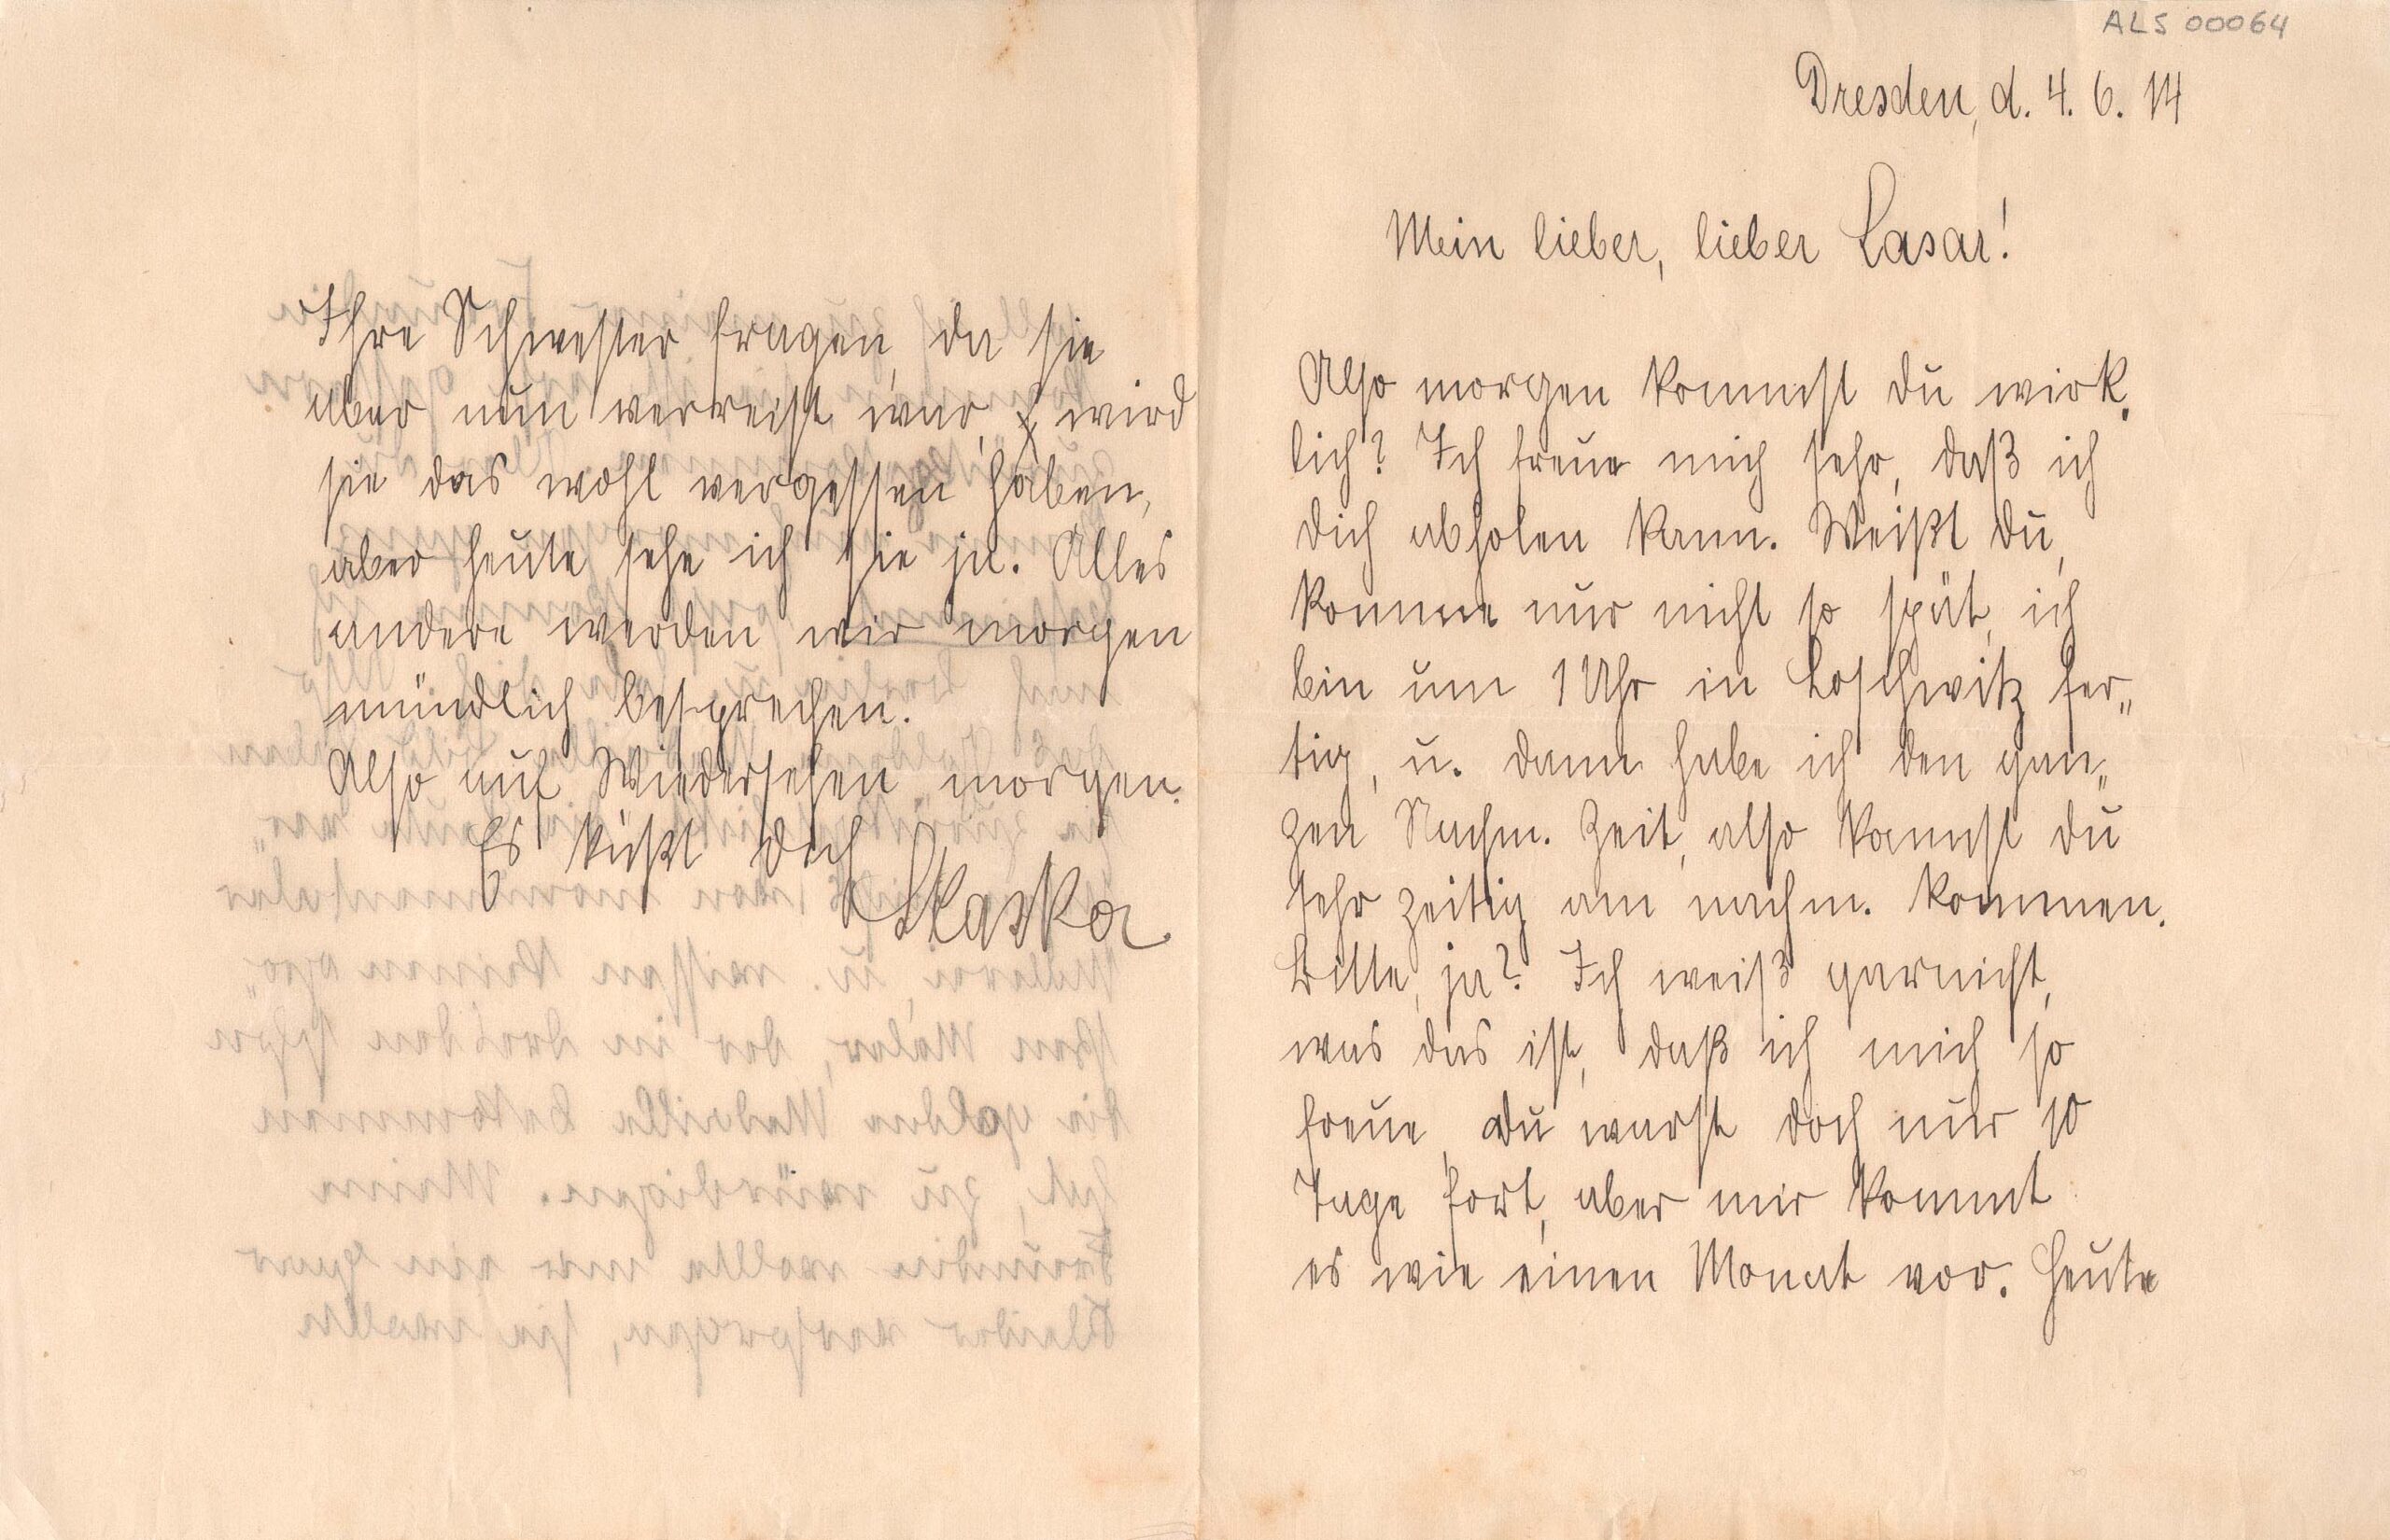 ALS 00064
Dresden, d. 4. 6. 14
Mein lieber, lieber Lasar!
Also morgen kommst du wirk„
lich? Ich freue mich sehr, daß ich
dich abholen kann. Weißt du,
komme nur nicht so spät, ich
bin um 1 Uhr in Loschwitz fer„
tig, u. dann habe ich den gan„
zen Nachm. Zeit, also kannst du
sehr zeitig am nachm. kommen.
Bitte, ja? Ich weiß garnicht,
was das ist, daß ich mich so
freue, du warst doch nur 10
Tage fort, aber mir kommt
es wie einen Monat vor. Heute
Ihre Schwester fragen, da sie
aber nun verreist war, wird
sie das wohl vergessen haben,
aber heute sehe ich sie ja. Alles
andere werden wir morgen
mündlich besprechen.
Also auf Wiedersehen morgen.
Es küßt dich
Skaska